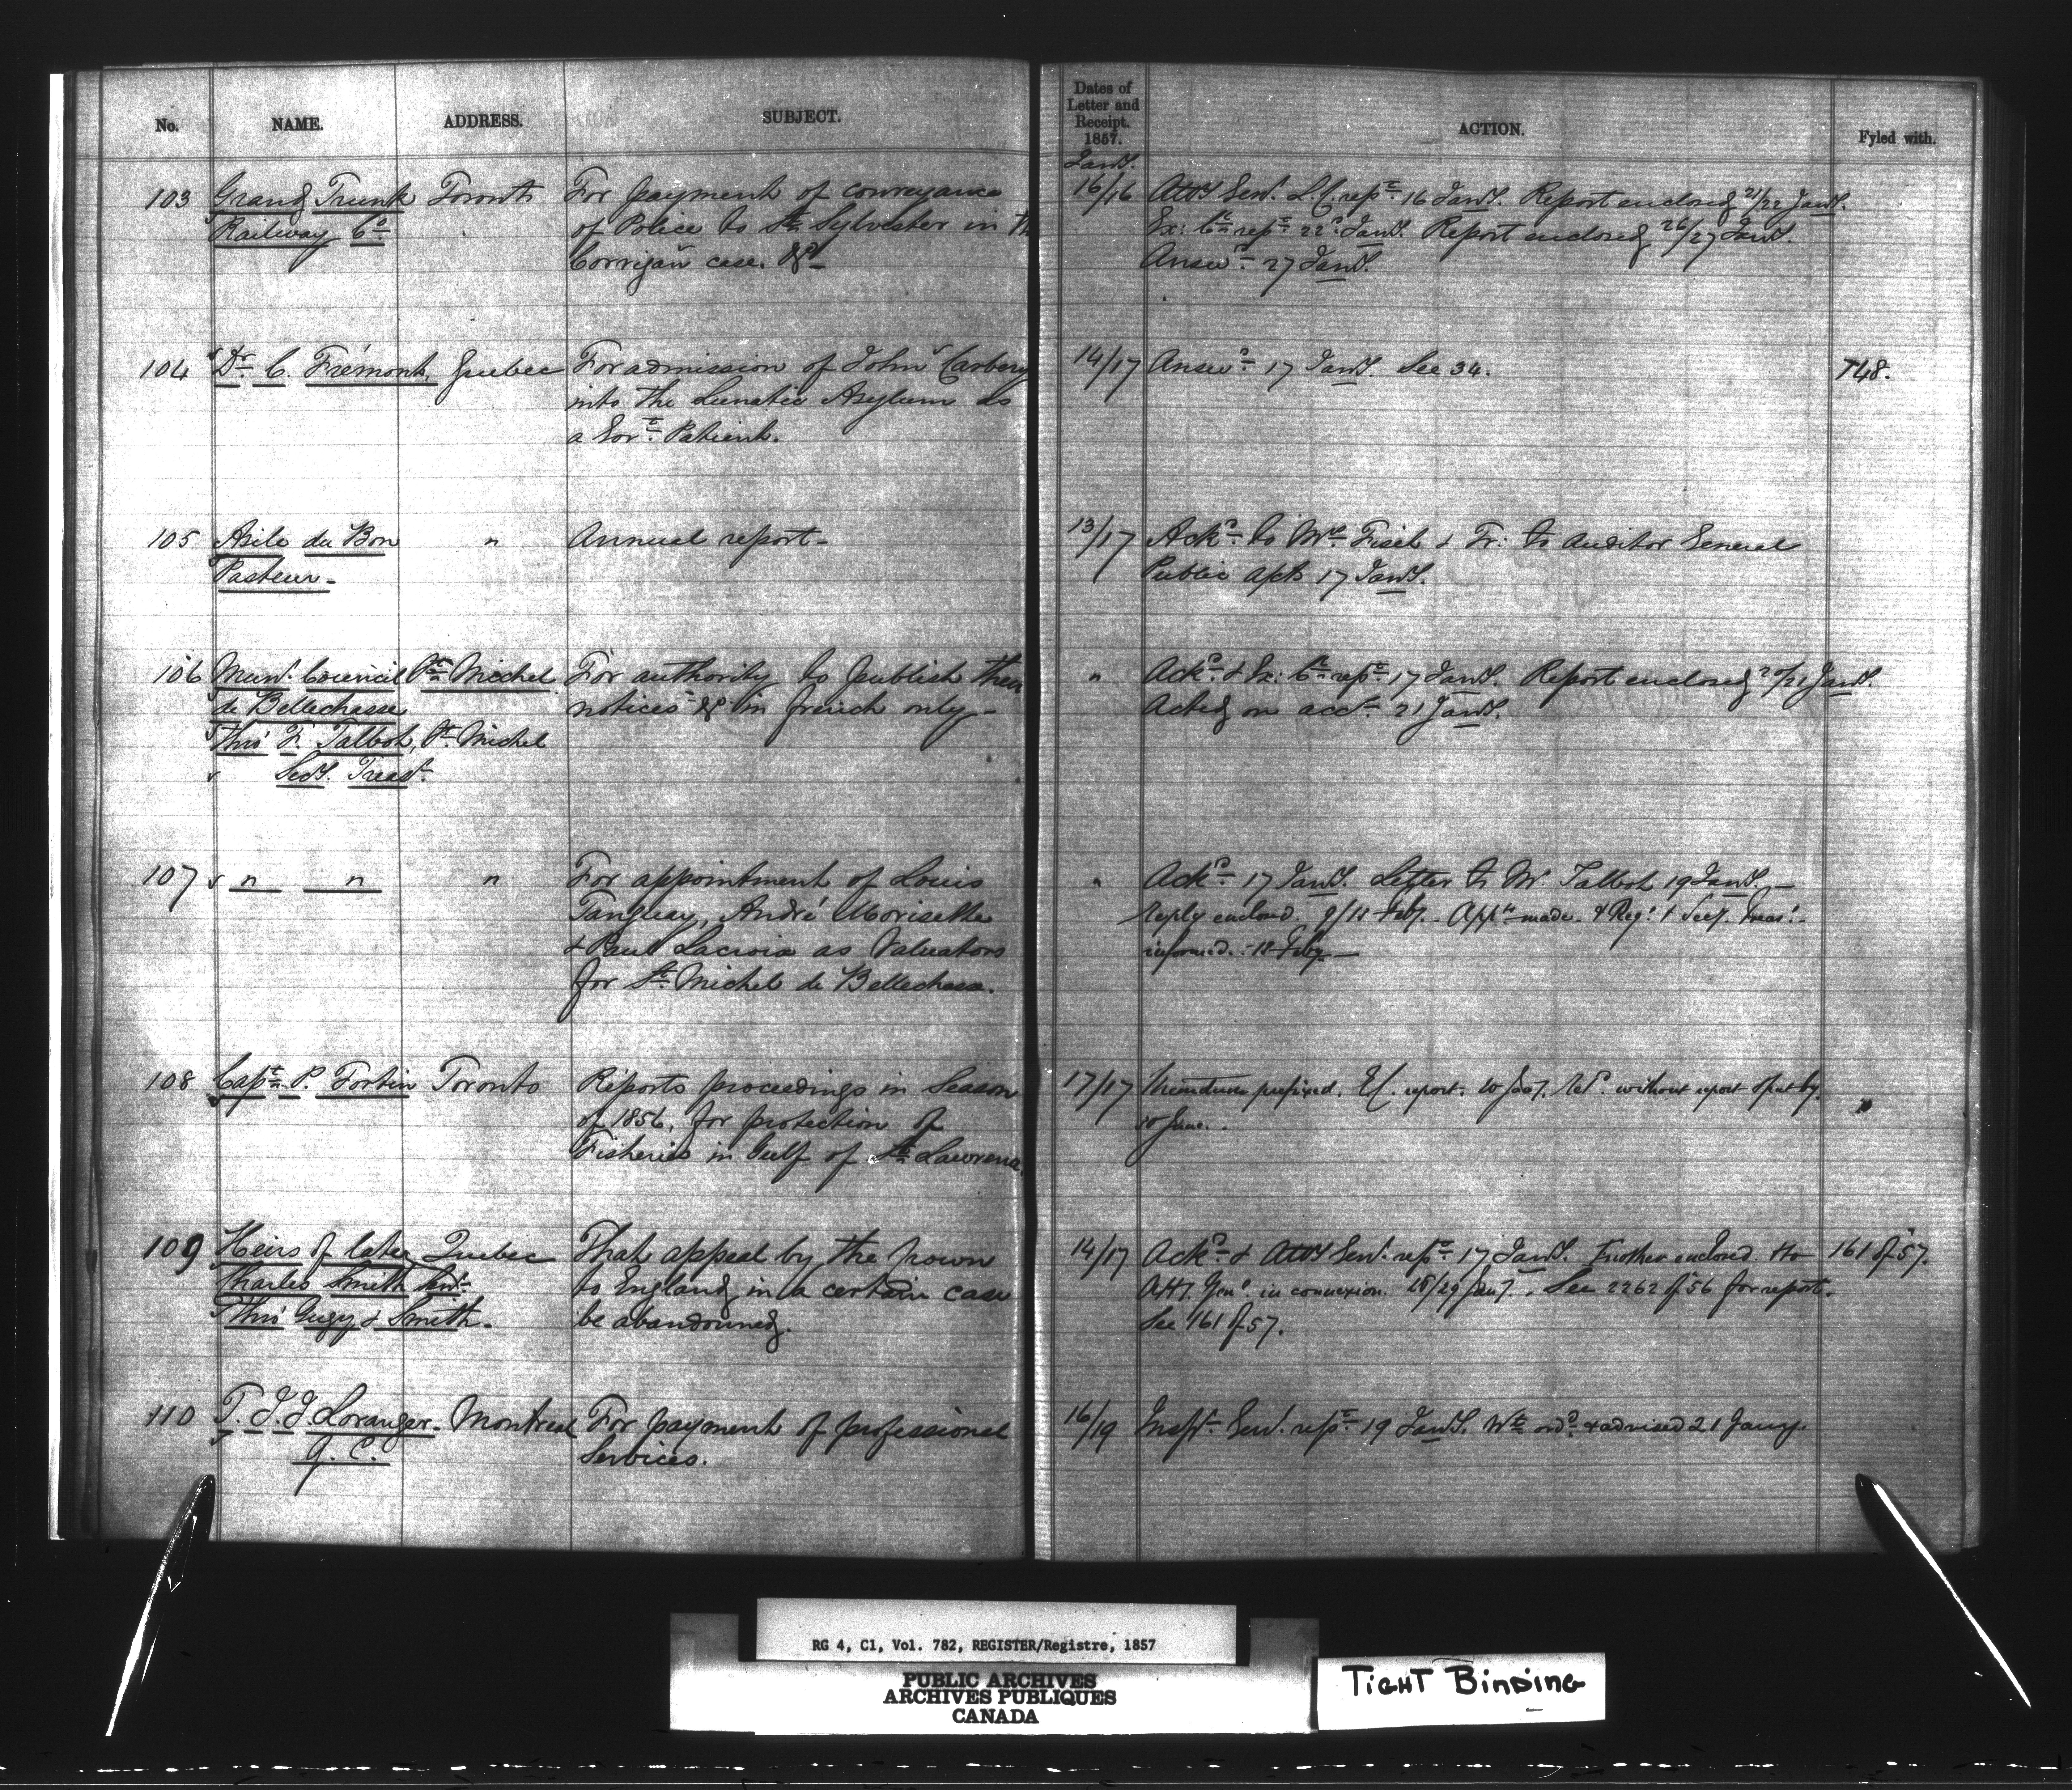 No. NAME. ADDRESS. SUBJECT.
Dates of
Letter and
Receipt.
1857.
ACTION. Fyled with.
Jany.
103 Grand Trunk Toronto For payment of conveyance 16/16 Atty Genl. L.C. repte 16 Jany. Report enclosed 21/22 Jany.
Railway Co. of Police to St. Sylvester in Th Ex: Cn repte 22d Jany. Report enclosed 26/27 Jany.
Corrigan case. &c Answd. 27 Jany.
104 Dr C. Frémont, Quebec For admission of John Carbery 14/17 Answd. 17 Jany. See 34. 748.
into the Lunatic Asylum as
a Govt. Patient.
105 Asile du Bon " Annual report - 13/17 Ackd. to Mrs Fiset & Tr: to Auditor General
Pasteur - Public accts 17 Jany.
106 Munl. Council St. Michel For authority to publish their " Ackd. & Ex: Cn repte 17 Jany. Report enclosed 20/21 Jany.
de Bellechasse notices &c in french only - Acted on accy. 21 Jany.
Thro' F. Talbot, St. Michel
Secy. Treasr.
107 " " " For appointment of Louis " Ackd. 17 Jany. Letter to Mr. Talbot 19 Jany. -
Tanguay, André Morisette Reply enclosd. 9/18 Feby. Appts made & Regr. & Secy. Treasr.
& Paul Lacroix as Valuators informed. 18 Feby -
for St. Michel de Bellechasse.
108 Capt. P. Fortin Toronto Reports proceedings in Season 17/17 prefixed. report. without report
of 1856, for protection of June.
Fisheries in Gulf of St. Lawrence
109 Heirs of late Quebec That appeal by the Crown 14/17 Ackd. & Atty Genl. repte 17 Jany. Another enclosed & to 161 of 57.
Charles Smith Senr. to England in a certain case Atty. Genl. in connexion. 28/29 Jany. See 2262 of 56 for report.
Thro' Gugy & Smith. be abandonned. See 161 of 57.
110 T. J. J. Loranger Montreal For payment of professional 16/19 Inspr. Genl. repte 19 Jany. Wt ordd & advised 21 Jany.
Q. C. Services.
RG 4, C1, Vol. 782, REGISTER/Registre, 1857
PUBLIC ARCHIVES
ARCHIVES PUBLIQUES
CANADA
TIGHT BINDING